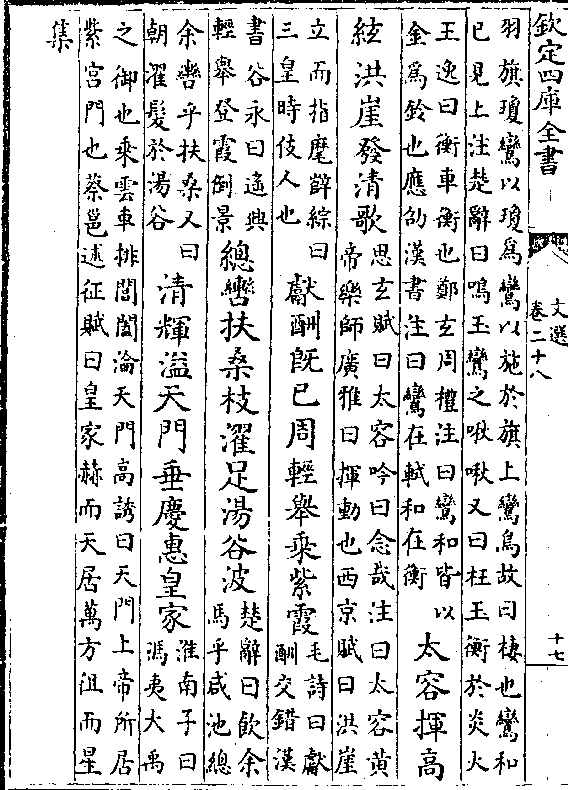 欽定四庫全書
文選
卷二十八
十七
羽旗瓊鸞以瓊爲鸞以施於旗上鸞鳥故曰棲也鸞和
已見上注楚辭曰鳴玉鸞之啾啾又曰枉玉衡於炎火
王逸曰衡車衡也鄭玄周禮注曰鸞和皆以
金爲鈴也應劭漢書注曰鸞在軾和在衡
太容揮高
絃洪崖發清歌
思玄賦曰太容吟曰念哉注曰太容黃
帝樂師廣雅曰揮動也西京賦曰洪崖
立而指麾薛綜曰
三皇時伎人也
獻酬旣已周輕舉乘紫霞
毛詩曰獻
酬交錯漢
書谷永曰遙興
輕舉登霞倒景
總轡扶桑枝濯足湯谷波
楚辭曰飲余
馬乎咸池總
余轡乎扶桑又曰
朝濯髮於湯谷
清輝溢天門垂慶惠皇家
淮南子曰
馮夷大禹
之御也乘雲車排閶闔淪天門高誘曰天門上帝所居
紫宮門也蔡邕述征賦曰皇家赫而天居萬方徂而星
集